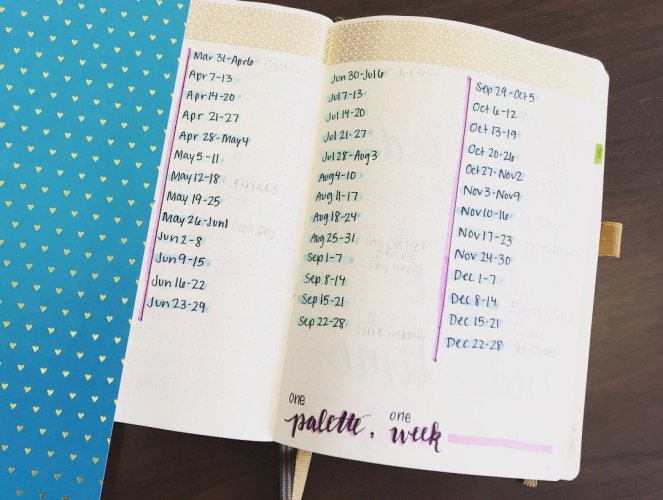 Mar 31-Apr 6 Easter
Apr 7-13
Apr 14-20
Apr 21-27
Apr 28-May 4
May 5-11
May 12-18 Finals
May 19-25
May 26-Jun 1
Jun 2-8
Jun 9-15
Jun 16-22
Jun 23-29
Jun 30-Jul 6 Jul 4
Jul 7-13
Jul 14-20
Jul 21-27
Jul 28-Aug 3
Aug 4-10
Aug 11-17
Aug 18-24
Aug 25-31
Sep 1-7
Sep 8-14
Sep 15-21
Sep 22-28
Sep 29-Oct 5
Oct 6-12
Oct 13-19
Oct 20-26
Oct 27-Nov 2
Nov 3-Nov 9
Nov 10-16
Nov 17-23
Nov 24-30
Dec 1-7
Dec 8-14
Dec 15-21
Dec 22-28
one palette, one week